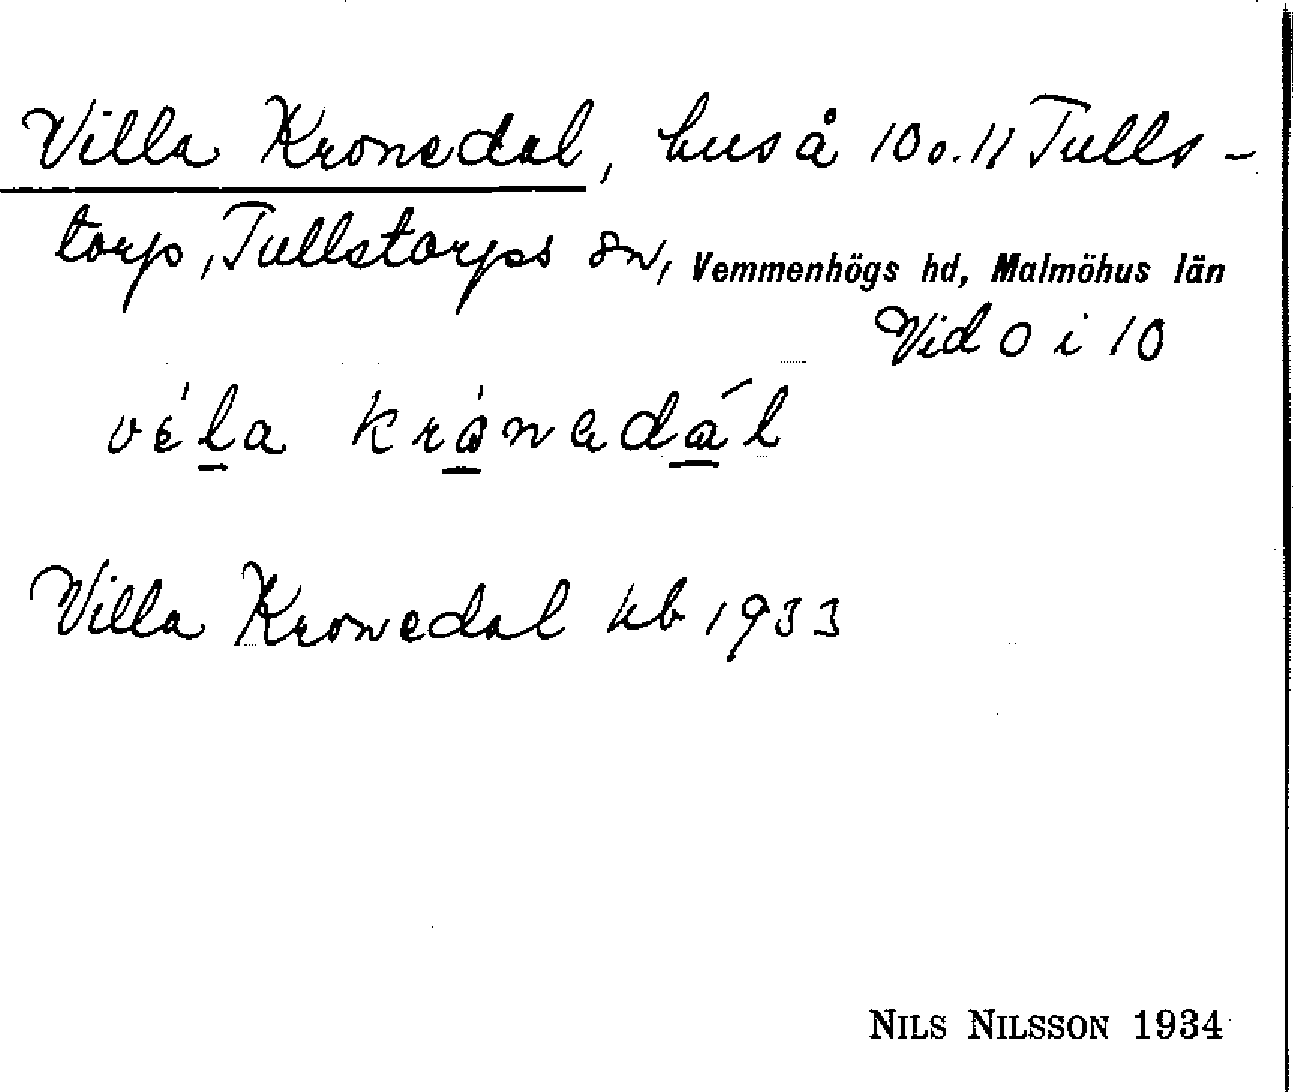 Villa Kronedal, hus å 10 o. 11 Tulls-
torp, Tullstorps sn, Vemmenhögs hd, Malmöhus län
Vid 0 i 10
Villa Kronedal kb 1933
NILS NILSSON 1934